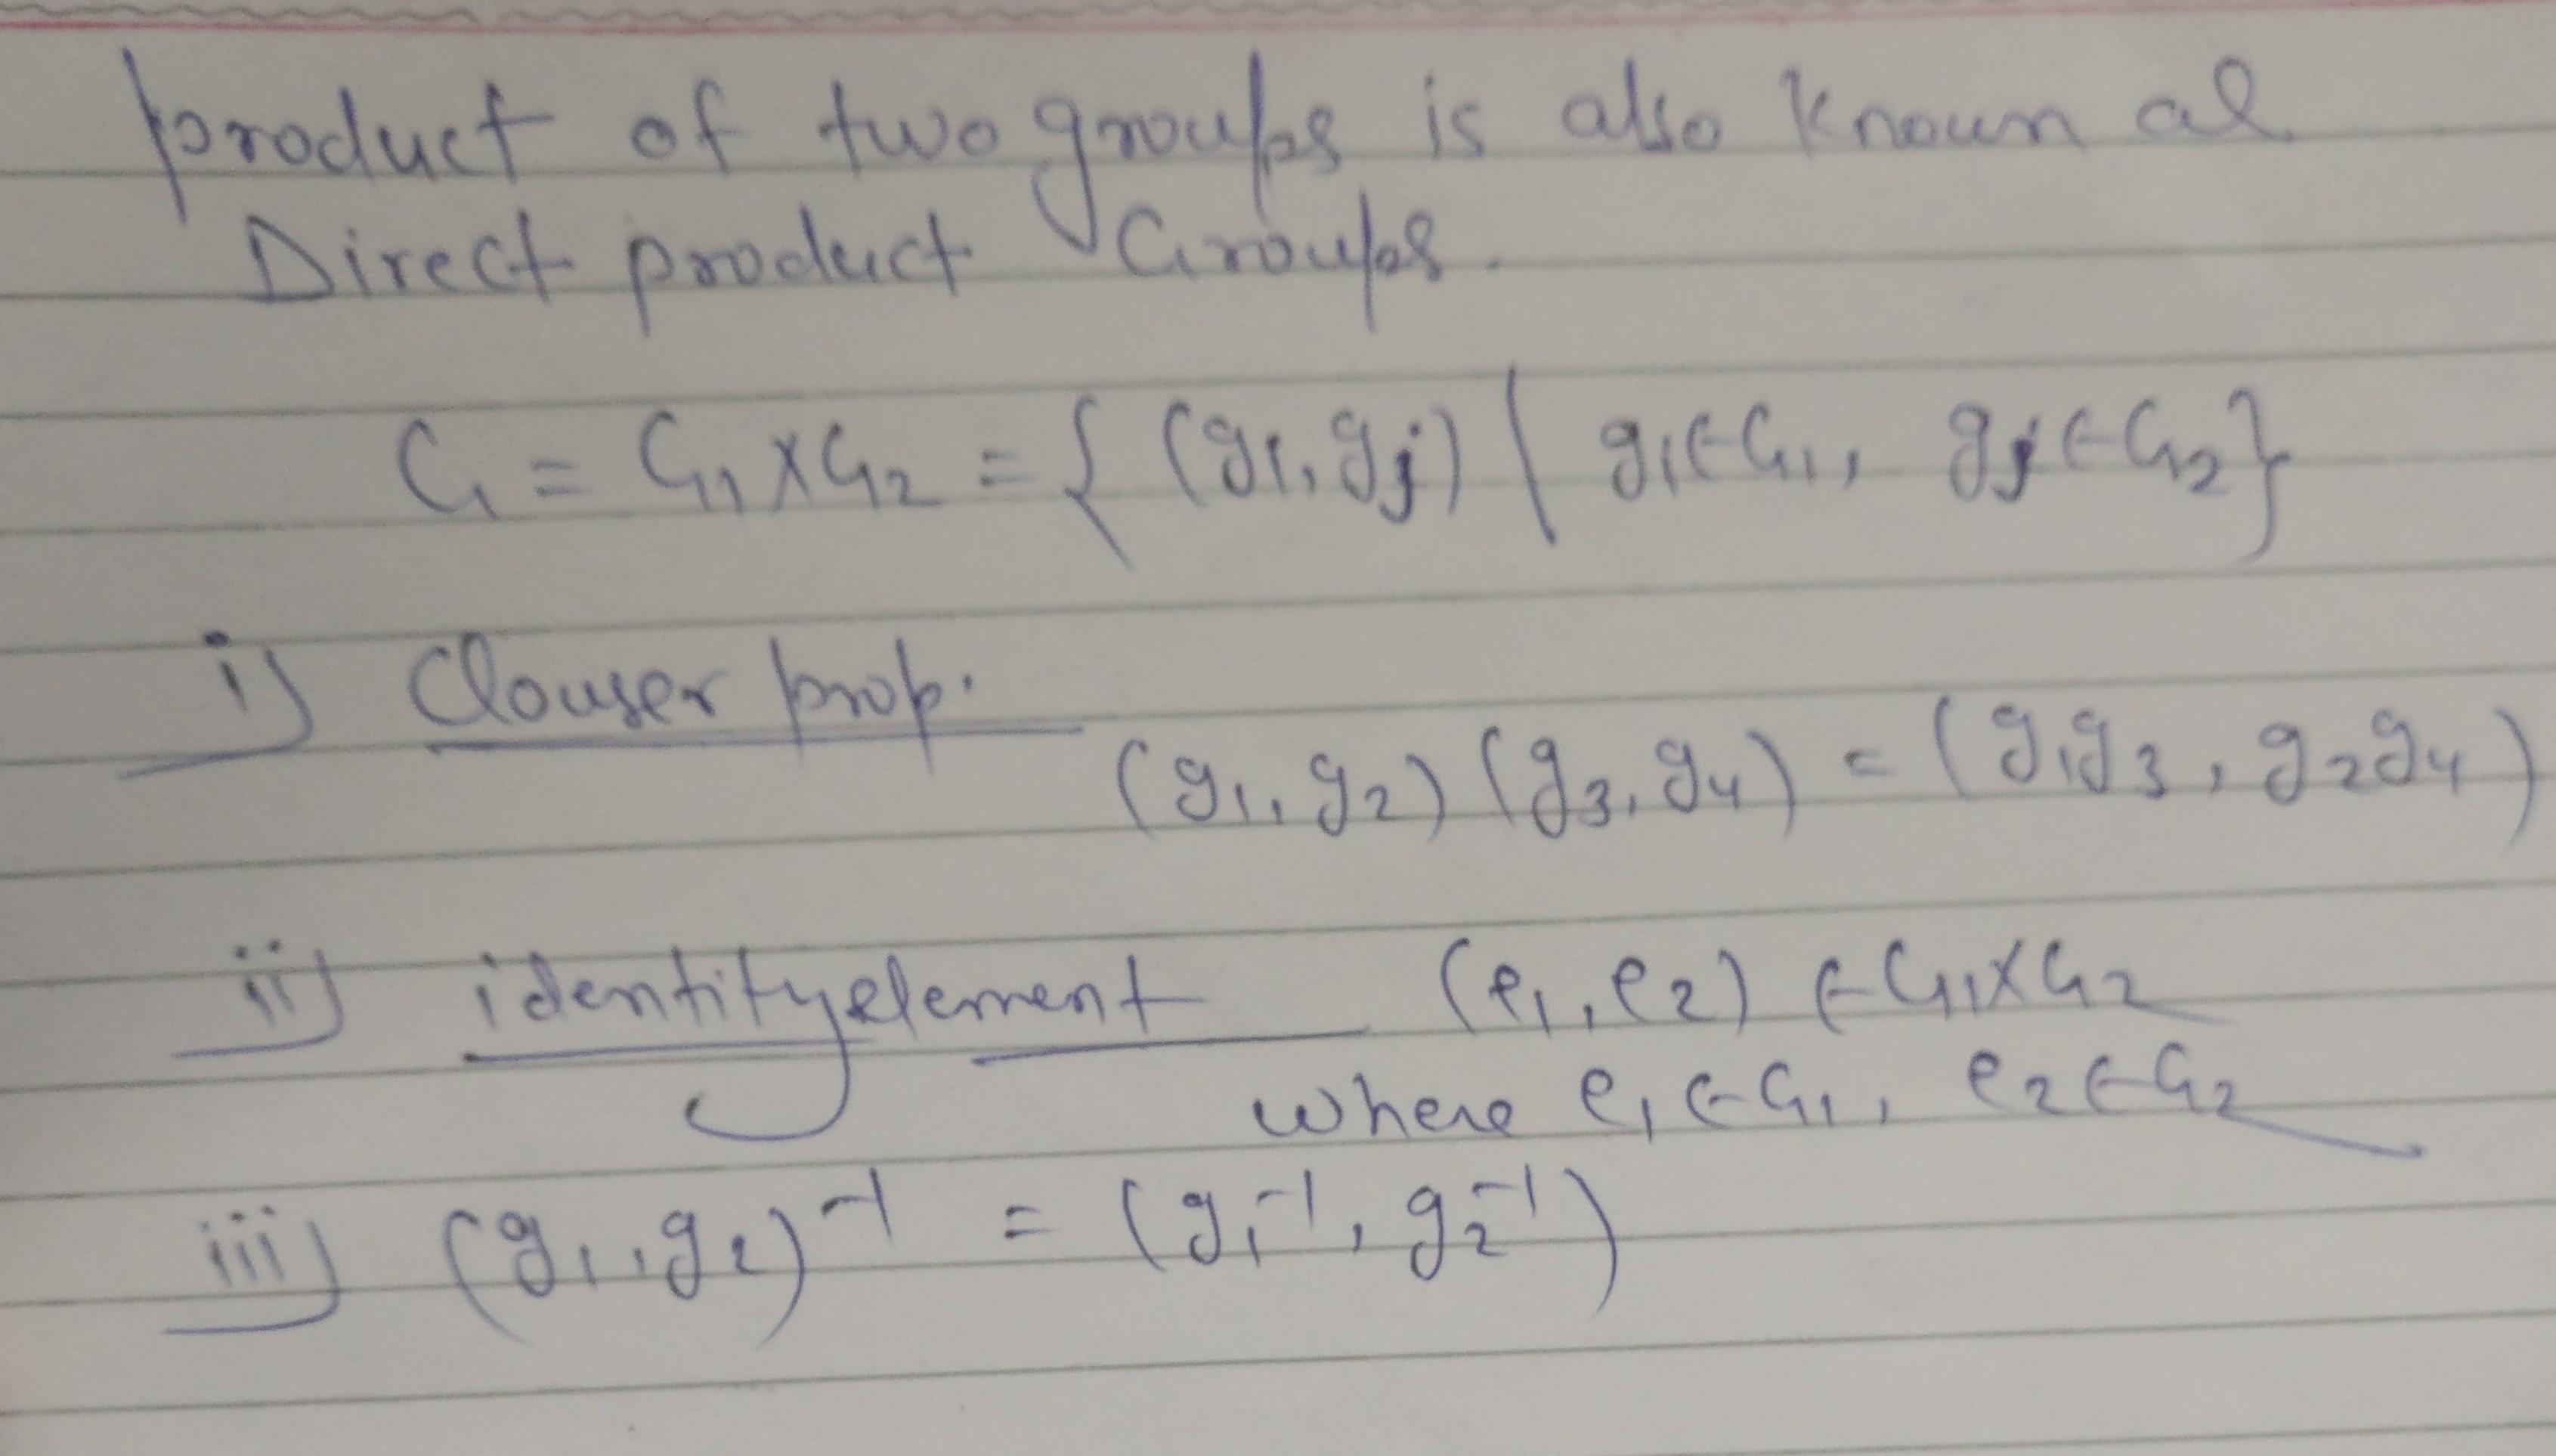 product of two groups is also known as
Direct product Groups.
G = G₁ × G₂ = { (gᵢ, gⱼ) | gᵢ ∈ G₁, gⱼ ∈ G₂}
i) Clouser prop.
(g₁, g₂) (g₃, g₄) = (g₁g₃, g₂g₄)
ii) identity element (e₁, e₂) ∈ G₁×G₂
where e₁ ∈ G₁, e₂ ∈ G₂
iii) (g₁, g₂)⁻¹ = (g₁⁻¹, g₂⁻¹)